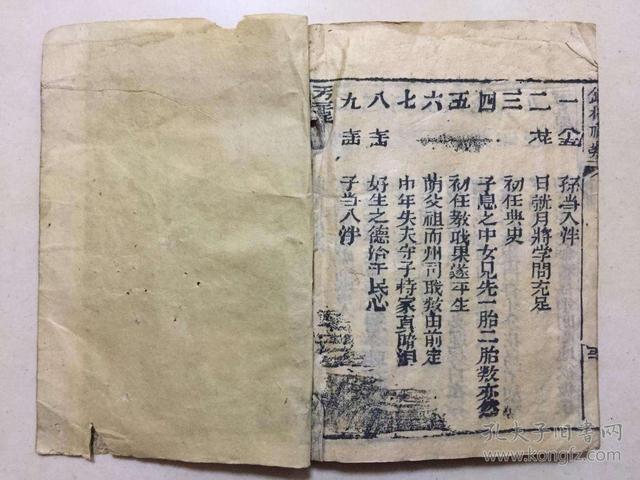 一 孫当入泮
二 日就月將学問充足
三 初任典史
四 子息之中女兄先一胎二胎数亦然
五 初任教职果遂平生
六 荫父祖而州司职数由前定
七 中年失夫守子持家真暗泪
八 好生之德洽于民心
九 子当入泮
孔夫子旧书网
www.kongfz.com